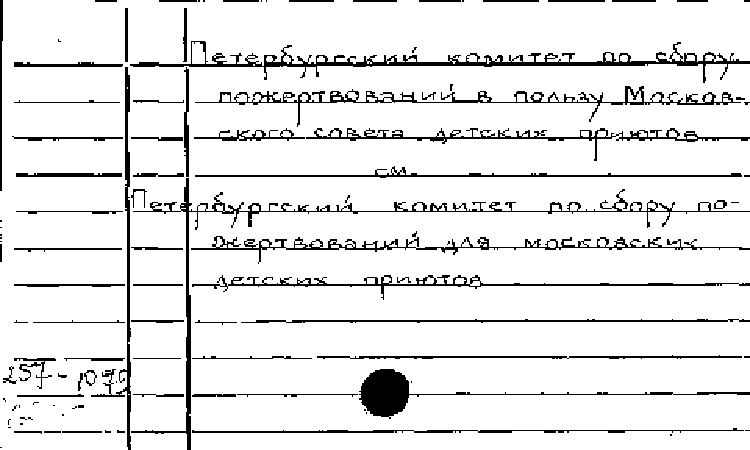 Петербургский комитет по сбору
пожертвований в пользу Москов-
ского совета детских приютов
см.
Петербургский комитет по сбору по-
жертвований для московских
детских приютов
257-1079